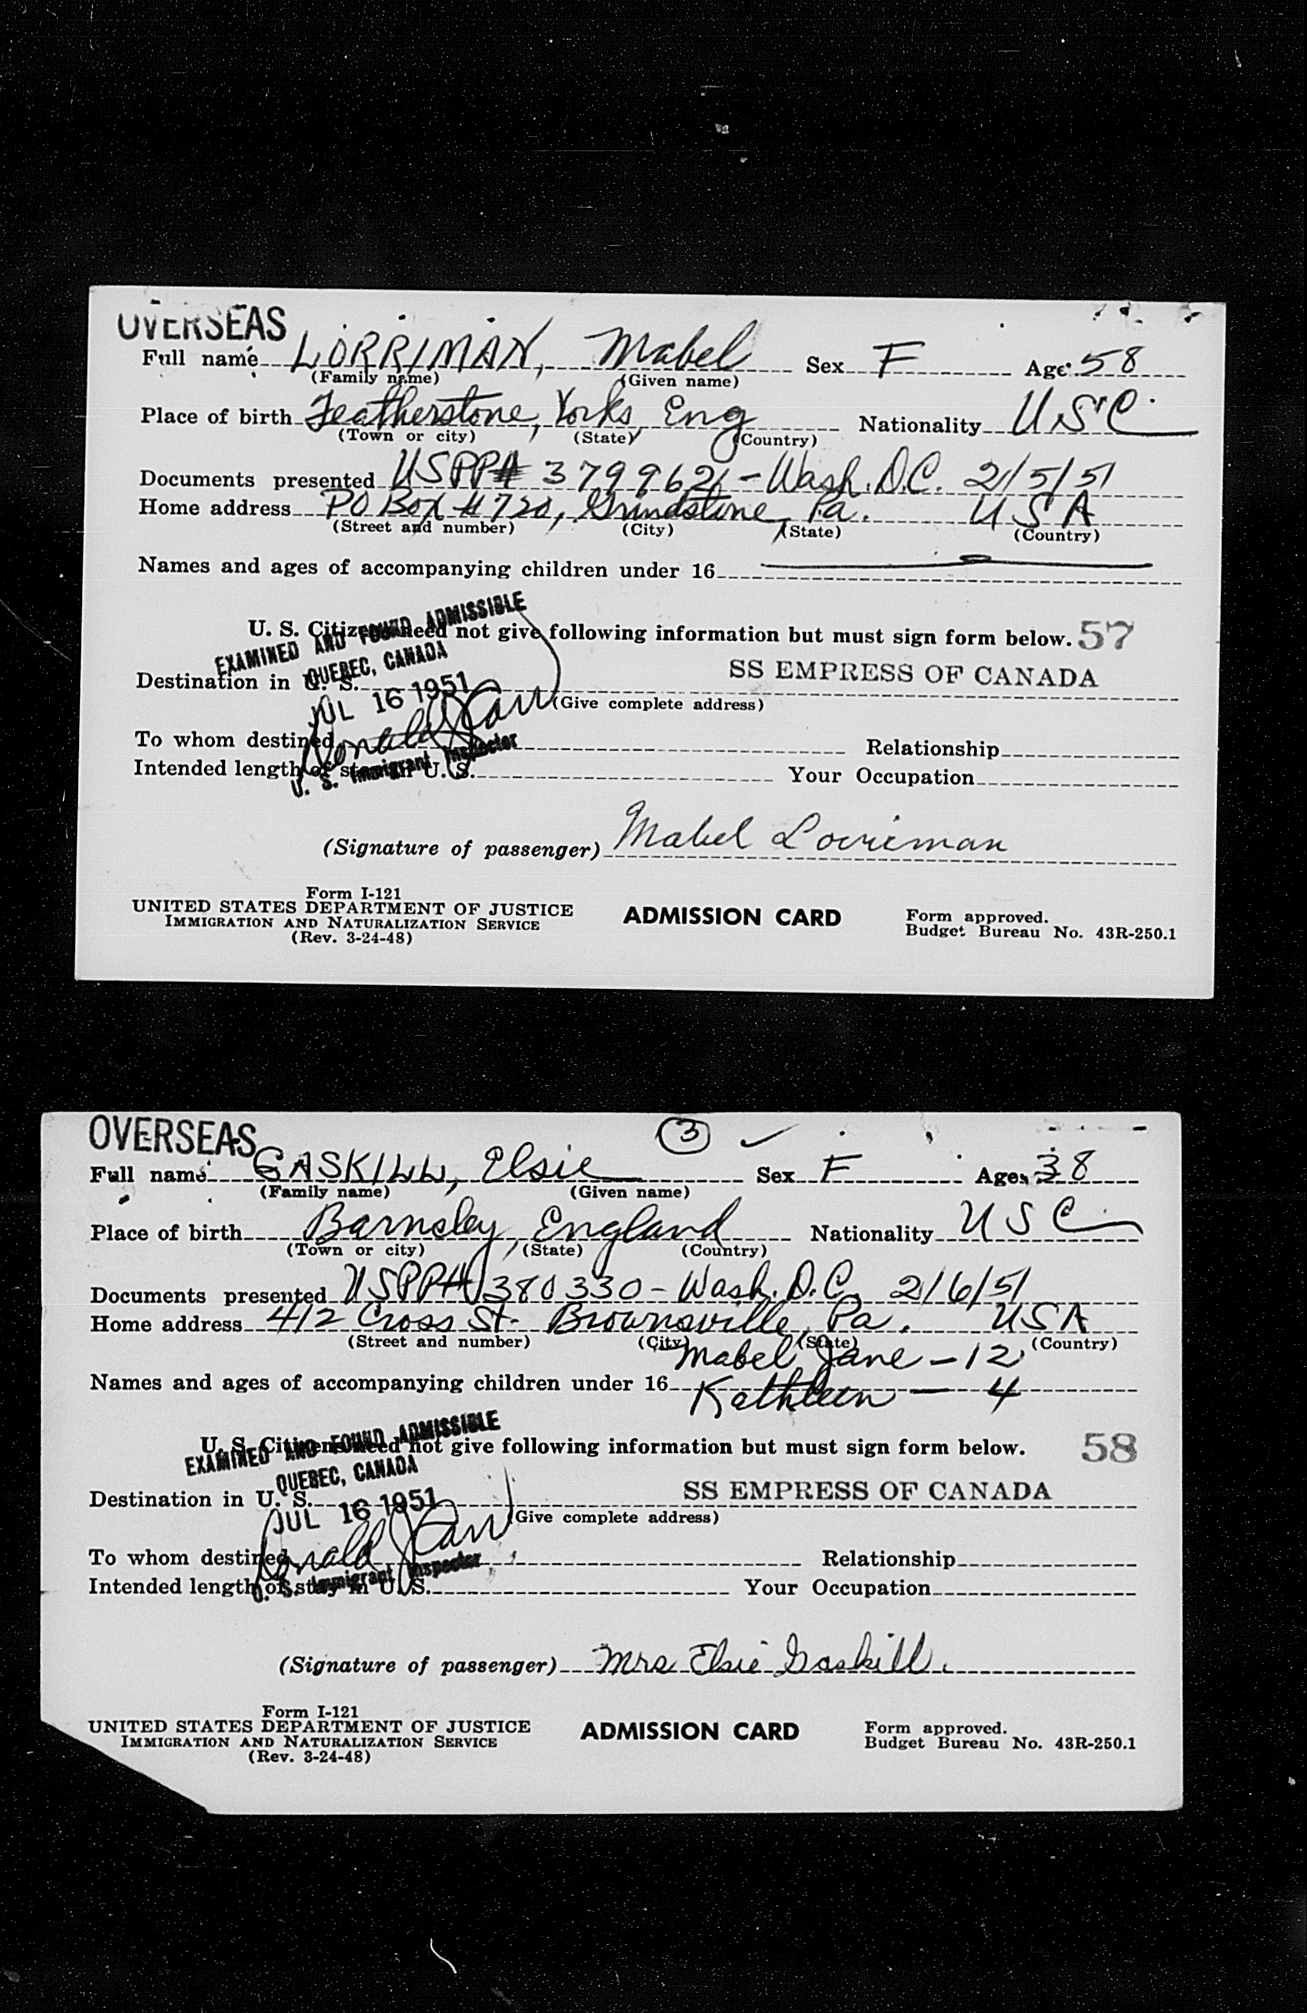 OVERSEAS
Full name LORRIMAN, Mabel Sex F Age 58
(Family name) (Given name)
Place of birth Featherstone, Yorks, Eng Nationality USC
(Town or city) (State) (Country)
Documents presented USPP# 379962 - Wash. D.C. 2/5/51
Home address PO Box #720, Grindstone, Pa. USA
(Street and number) (City) (State) (Country)
Names and ages of accompanying children under 16
U. S. Citizens need not give following information but must sign form below. 57
EXAMINED AND FOUND ADMISSIBLE
QUEBEC, CANADA
SS EMPRESS OF CANADA
Destination in U. S.
JUL 16 1951
(Give complete address)
To whom destined Relationship
Donald J Carr
Intended length of stay in U. S. Your Occupation
U. S. Immigrant Inspector
(Signature of passenger) Mabel Lorriman
Form I-121
UNITED STATES DEPARTMENT OF JUSTICE
IMMIGRATION AND NATURALIZATION SERVICE
(Rev. 3-24-48)
ADMISSION CARD
Form approved.
Budget Bureau No. 43R-250.1
OVERSEAS
3
Full name GASKILL, Elsie Sex F Age 38
(Family name) (Given name)
Place of birth Barnsley, England Nationality USC
(Town or city) (State) (Country)
Documents presented USPP# 380330 - Wash. D.C. 2/6/51
Home address 412 Cross St. Brownsville, Pa. USA
(Street and number) (City) (State) (Country)
Mabel Jane - 12
Names and ages of accompanying children under 16 Kathleen - 4
U. S. Citizens need not give following information but must sign form below. 58
EXAMINED AND FOUND ADMISSIBLE
QUEBEC, CANADA
SS EMPRESS OF CANADA
Destination in U. S.
JUL 16 1951
(Give complete address)
To whom destined Relationship
Donald J Carr
Intended length of stay in U. S. Your Occupation
U. S. Immigrant Inspector
(Signature of passenger) Mrs Elsie Gaskill.
Form I-121
UNITED STATES DEPARTMENT OF JUSTICE
IMMIGRATION AND NATURALIZATION SERVICE
(Rev. 3-24-48)
ADMISSION CARD
Form approved.
Budget Bureau No. 43R-250.1